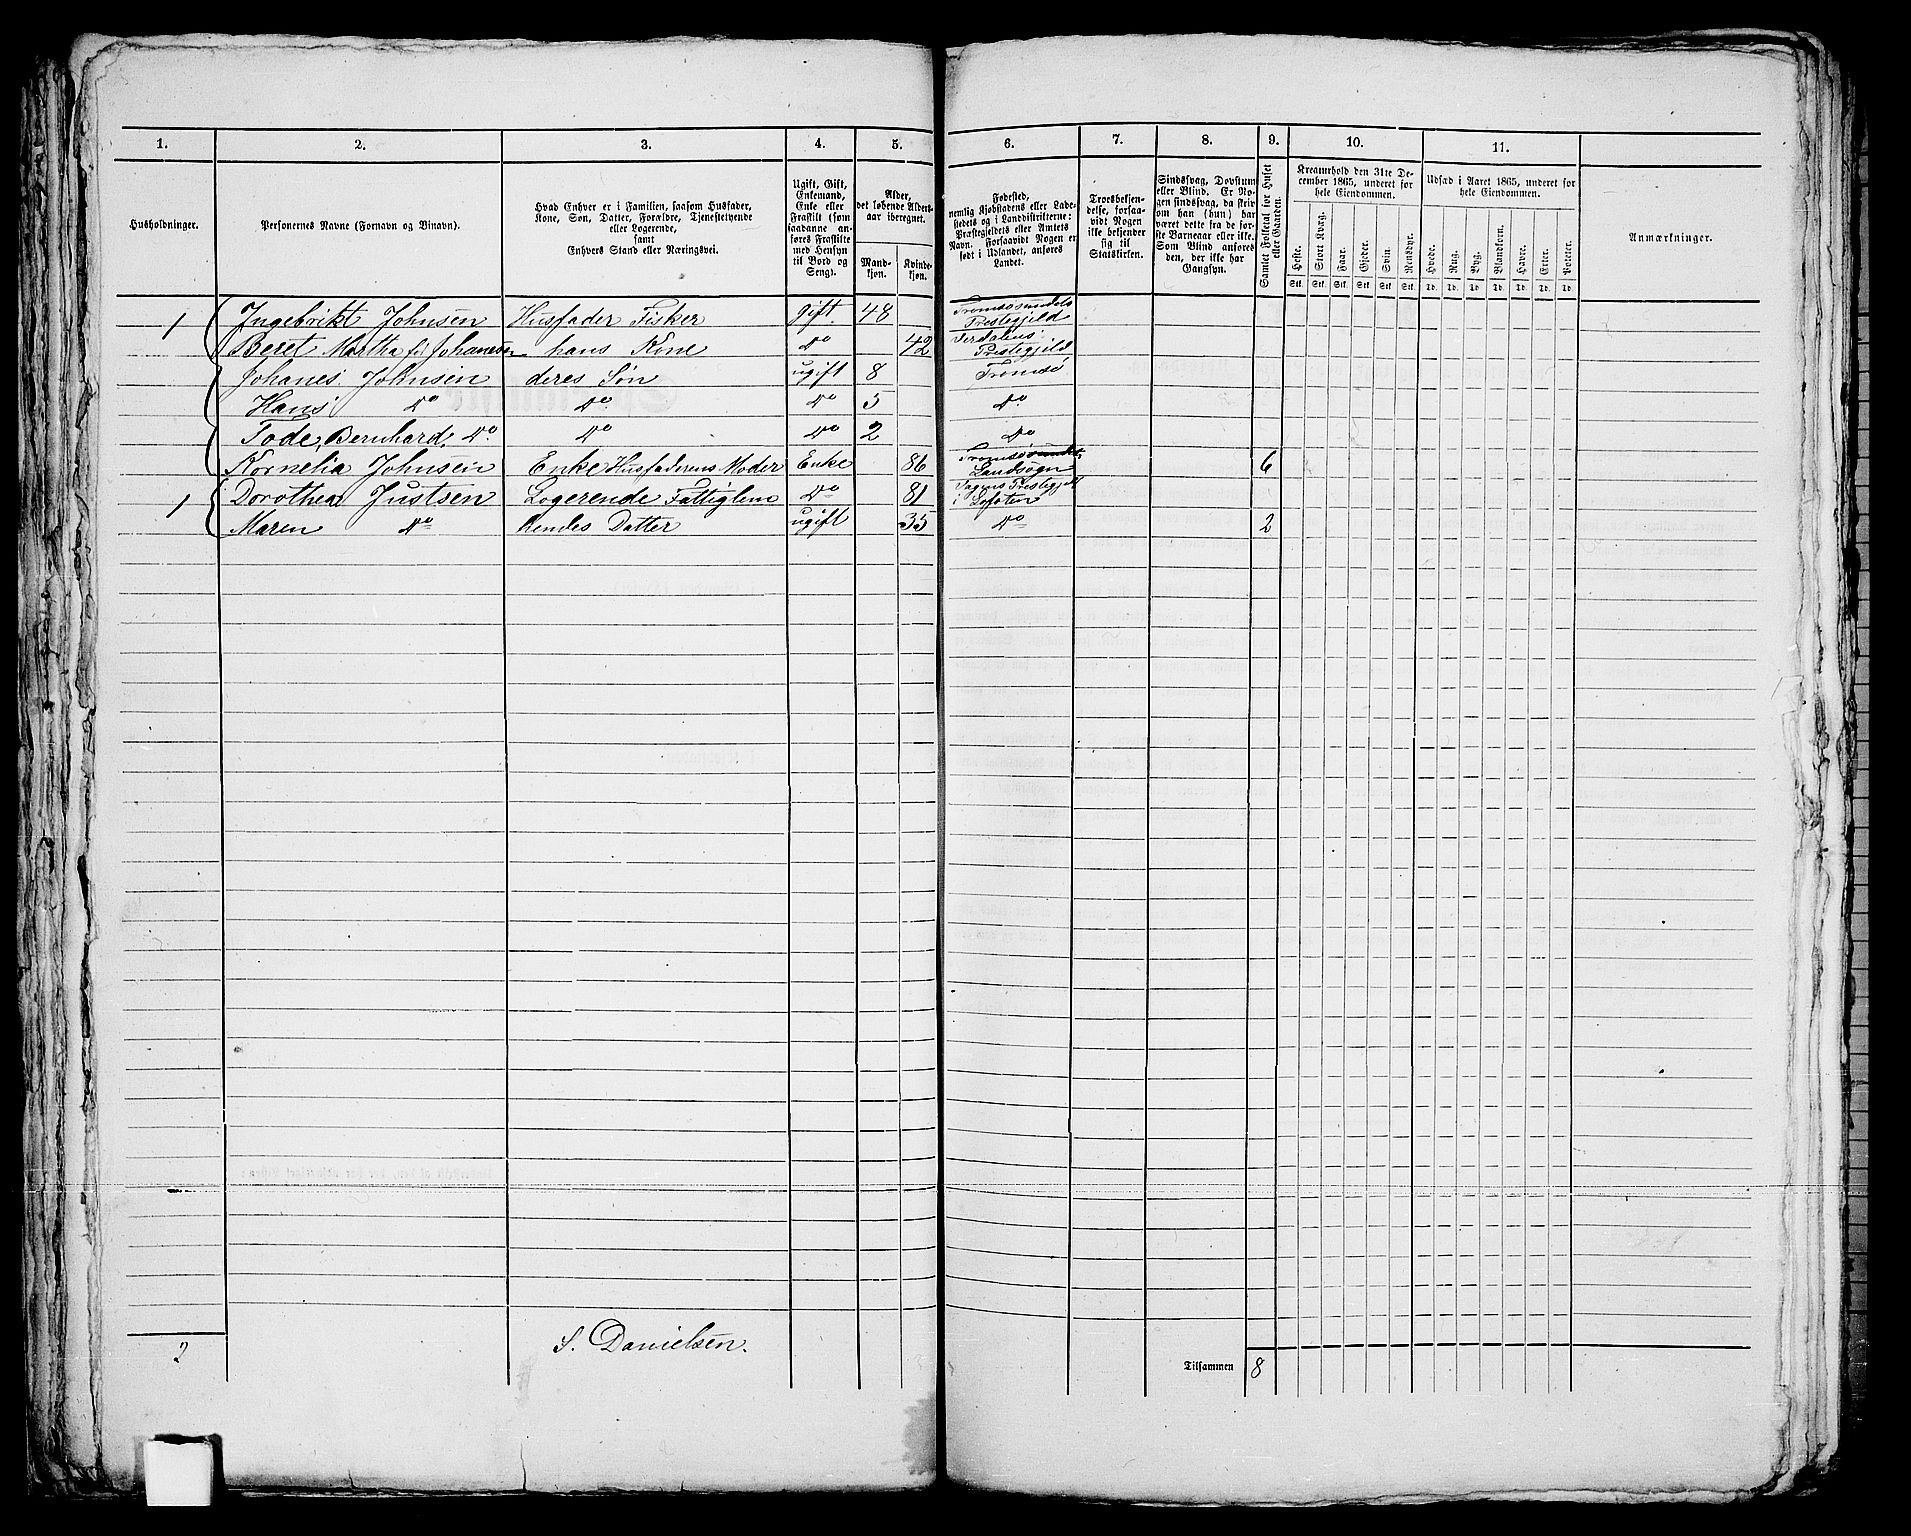 1. 2. 3. 4. 5. 6. 7. 8. 9. 10. 11.
Husholdninger.
Personernes Navne (Fornavn og Binavn).
Hvad Enhver er i Familien, saasom Husfader,
Kone, Søn, Datter, Forældre, Tjenestetyende
eller Logerende,
samt
Enhvers Stand eller Næringsvei.
Ugift, Gift,
Enkemand,
Enke eller
Fraskilt (som
saadanne an-
føres Fraskilte
med Hensyn
til Bord og
Seng).
Alder,
det løbende Alders-
aar iberegnet.
Mand-
kjøn.
Kvinde-
kjøn.
Fødested,
nemlig Kjøbstadens eller Lade-
stedets og i Landdistrikterne:
Præstegjeldets eller Amtets
Navn. Forsaavidt Nogen er
født i Udlandet, anføres
Landet.
Troesbekjen-
delse, forsaa-
vidt Nogen
ikke bekjender
sig til
Statskirken.
Sindssvag, Døvstum
eller Blind. Er No-
gen sindssvag, da skriv
om han (hun) har
været dette fra de før-
ste Barneaar eller ikke.
Som Blind anføres
den, der ikke har
Gangsyn.
Samlet Folketal for Huset
eller Gaarden.
Kreaturhold den 31te De-
cember 1865, underet for
hele Eiendommen.
Heste. Stort Kvæg. Faar. Gjeder. Svin. Rensdyr.
Stk. Stk. Stk. Stk. Stk. Stk.
Udsæd i Aaret 1865, underet for
hele Eiendommen.
Hvede. Rug. Byg. Blandkorn. Havre. Erter. Poteter.
Td. Td. Td. Td. Td. Td. Td.
Anmærkninger.
1 Ingebrikt Johnsen Husfader Fisker gift 48 Tromsøsundets Prestegjeld
Beret Martha f. Johannesen hans Kone do 42 Verdalens Prestegjeld
Johanes Johnsen deres Søn ugift 8 Tromsø
Hans do do do 5 do
Tode Bernhard do do do 2 do
Kornelia Johnsen Enke Husfaderens Moder Enke 86 Tromsøsundets Landsogn 6
1 Dorothea Justsen Logerende Fattiglem do 81 i Lofoten
Maren do hendes Datter ugift 35 do 2
2
S. Danielsen.
Tilsammen 8